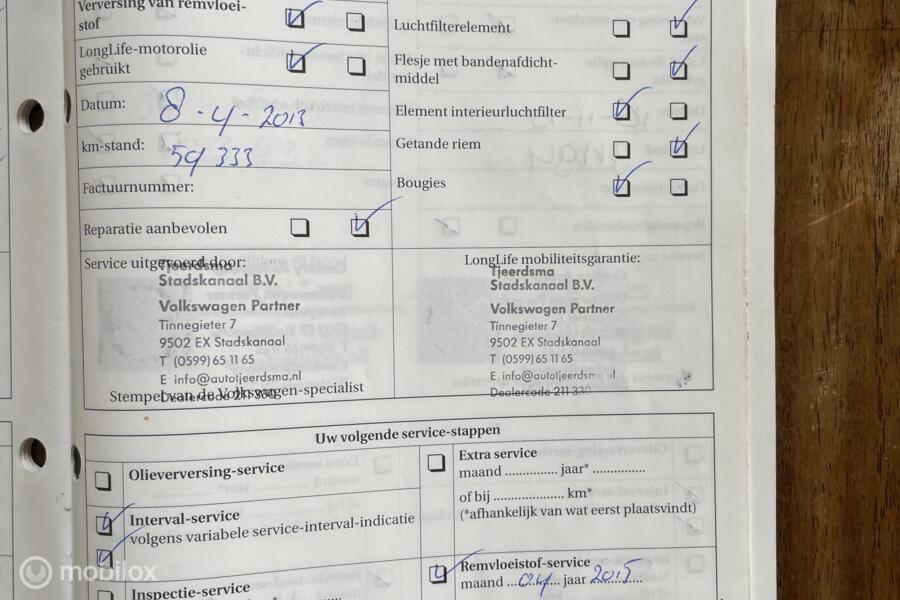 Verversing van remvloei-
stof
LongLife-motorolie
gebruikt
Datum: 8-4-2013
km-stand: 59 333
Factuurnummer:
Reparatie aanbevolen
Luchtfilterelement
Flesje met bandenafdicht-
middel
Element interieurluchtfilter
Getande riem
Bougies
Service uitgevoerd door:
Tjeerdsma
Stadskanaal B.V.
Volkswagen Partner
Tinnegieter 7
9502 EX Stadskanaal
T (0599) 65 11 65
E info@autotjeerdsma.nl
Dealercode 211 330
Stempel van de Volkswagen-specialist
LongLife mobiliteitsgarantie:
Tjeerdsma
Stadskanaal B.V.
Volkswagen Partner
Tinnegieter 7
9502 EX Stadskanaal
T (0599) 65 11 65
E info@autotjeerdsma.nl
Dealercode 211 330
Uw volgende service-stappen
Olieverversing-service
Interval-service
volgens variabele service-interval-indicatie
Inspectie-service
Extra service
maand .............. jaar* ..............
of bij .................... km*
(*afhankelijk van wat eerst plaatsvindt)
Remvloeistof-service
maand ...04... jaar 2015......
mobilox